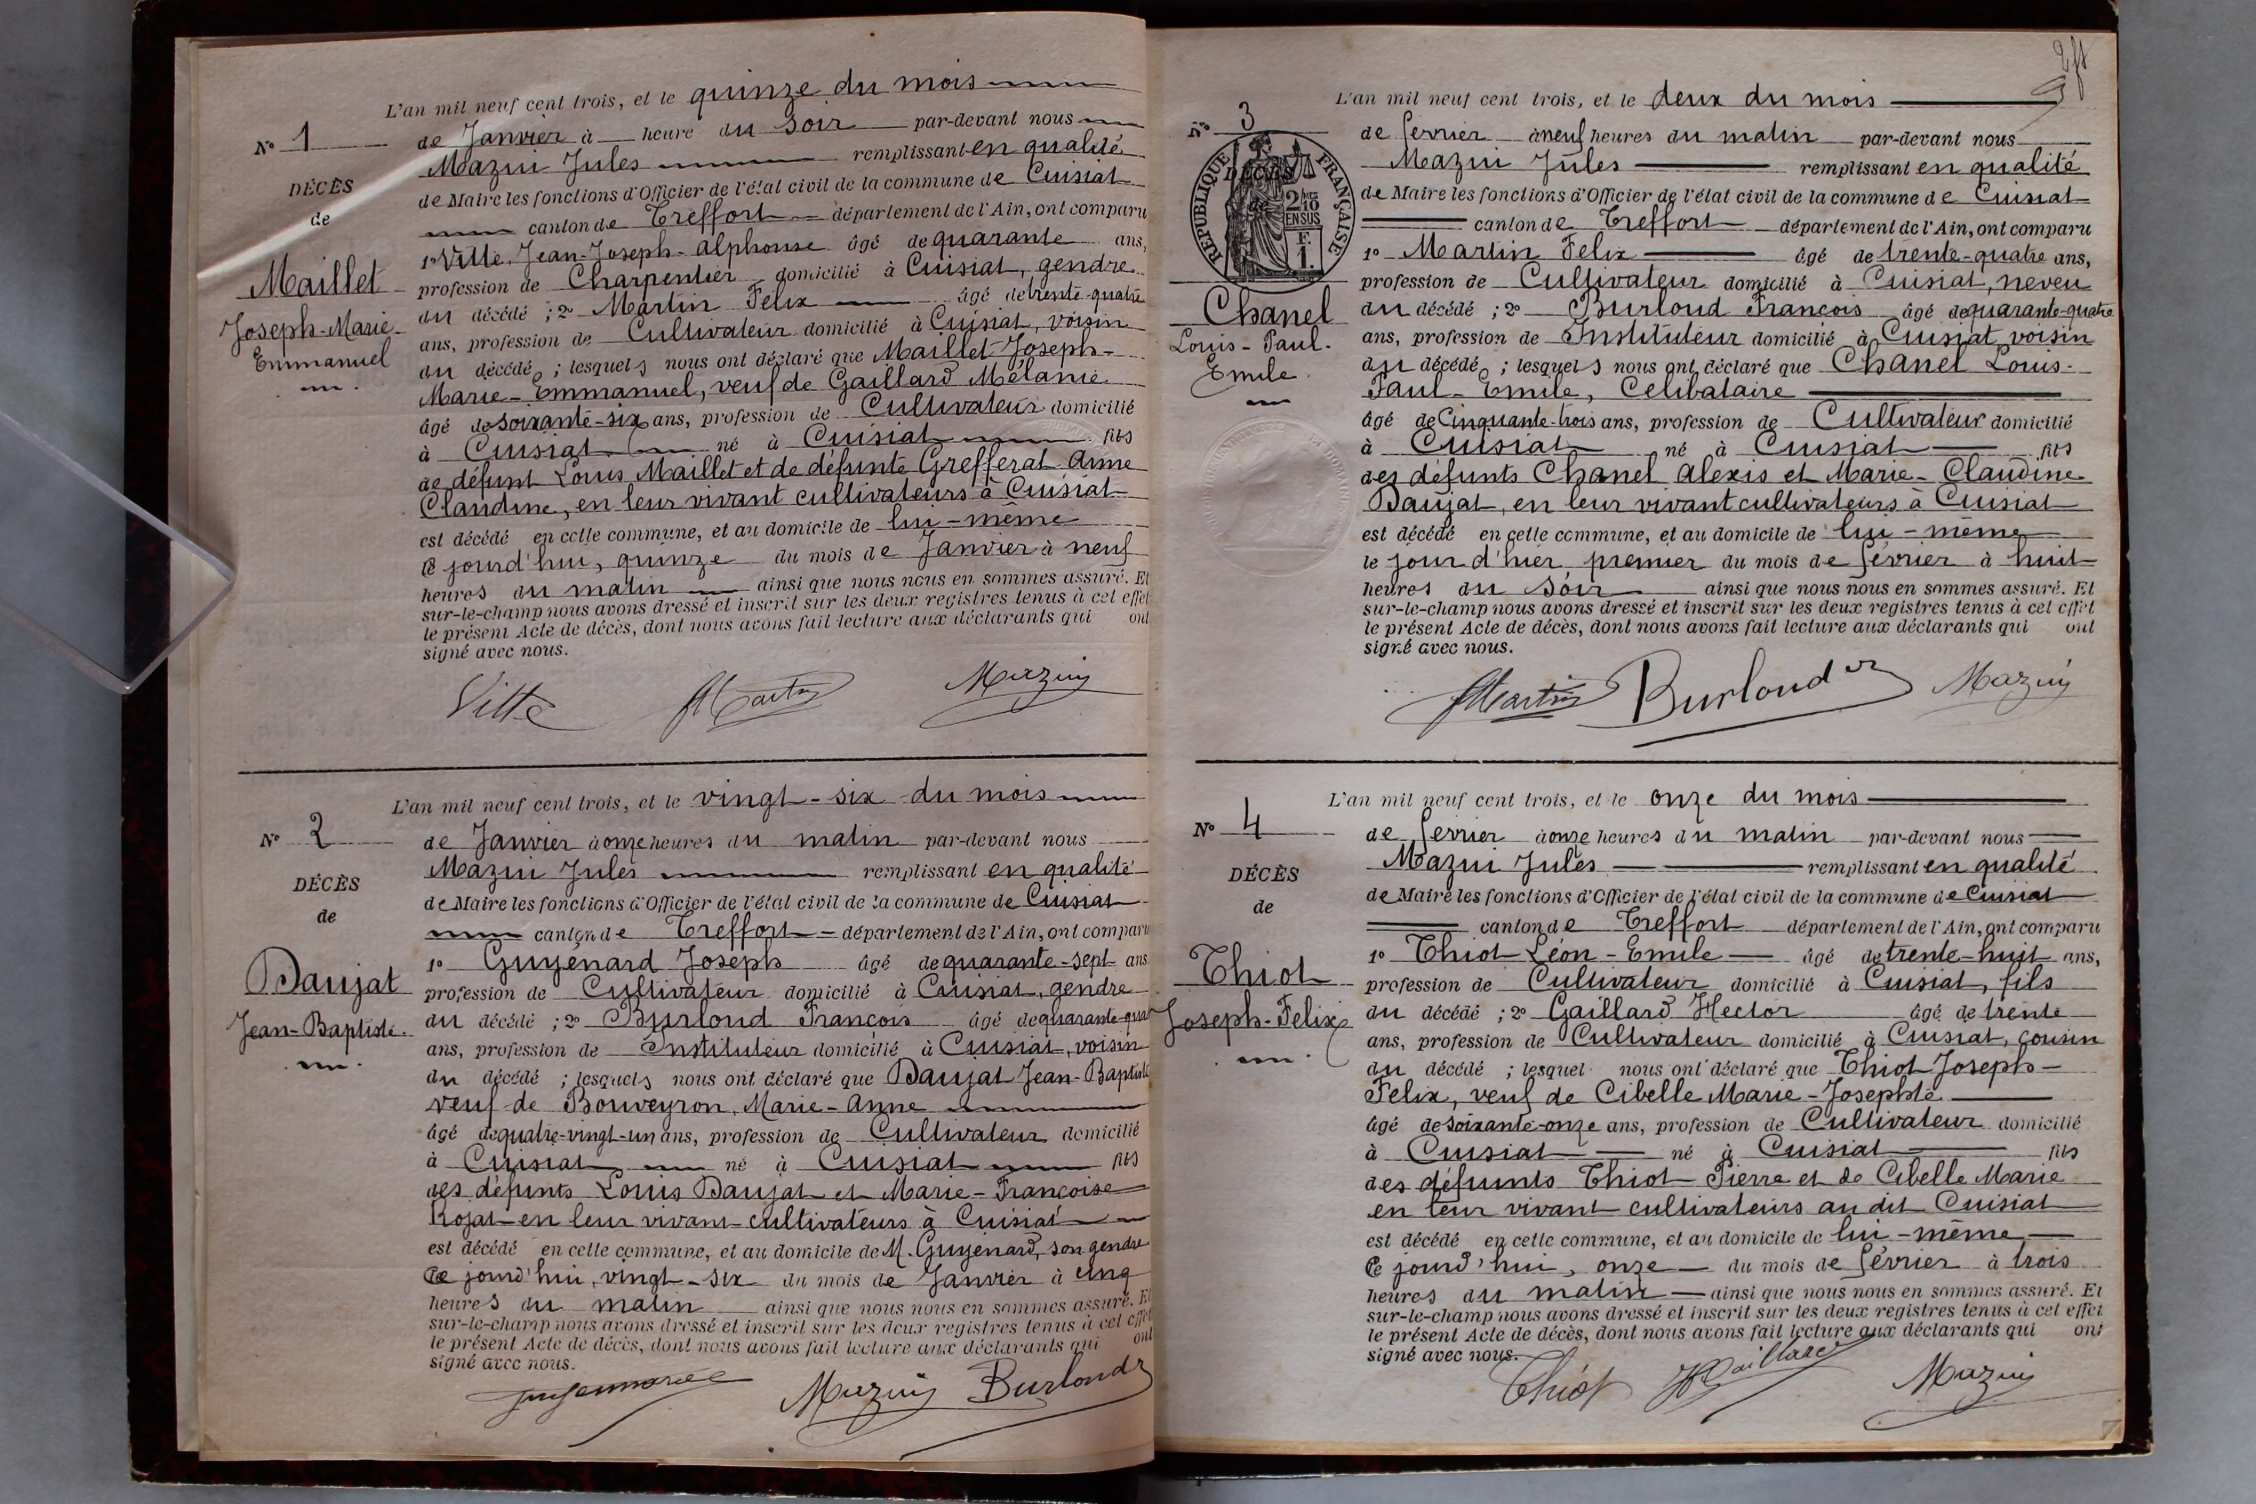 L'an mil neuf cent trois, et le quinze du mois
N° 1
de Janvier à heure du soir par-devant nous
Mazui Jules remplissant en qualité
DÉCÈS
de Maire les fonctions d'Officier de l'état civil de la commune de Cuisiat
de
canton de Treffort département de l'Ain, ont comparu
1° Vitte Jean-Joseph-Alphonse âgé de quarante ans,
Maillet
profession de Charpentier domicilié à Cuisiat, gendre
du décédé ; 2° Martin Felix âgé de trente-quatre
Joseph-Marie-
ans, profession de Cultivateur domicilié à Cuisiat, voisin
Emmanuel
du décédé ; lesquels nous ont déclaré que Maillet Joseph-
Marie-Emmanuel, veuf de Gaillard Mélanie
âgé de soixante-six ans, profession de Cultivateur domicilié
à Cuisiat né à Cuisiat fils
de défunt Louis Maillet et de défunte Grefferat Anne
Claudine, en leur vivant cultivateurs à Cuisiat
est décédé en cette commune, et au domicile de lui-même
ce jourd'hui, quinze du mois de Janvier à neuf
heures du matin ainsi que nous nous en sommes assuré. Et
sur-le-champ nous avons dressé et inscrit sur les deux registres tenus à cet effet
le présent Acte de décès, dont nous avons fait lecture aux déclarants qui ont
signé avec nous.
Vitte Martin Mazuy
L'an mil neuf cent trois, et le vingt-six du mois
N° 2
de Janvier à onze heures du matin par-devant nous
Mazui Jules remplissant en qualité
DÉCÈS
de Maire les fonctions d'Officier de l'état civil de la commune de Cuisiat
de
canton de Treffort département de l'Ain, ont comparu
1° Guyénard Joseph âgé de quarante-sept ans
Daujat
profession de Cultivateur domicilié à Cuisiat, gendre
Jean-Baptiste
du décédé ; 2° Burloud François âgé de quarante-quat
ans, profession de Instituteur domicilié à Cuisiat, voisin
du décédé ; lesquels nous ont déclaré que Daujat Jean-Baptiste
veuf de Bouveyron, Marie-Anne
âgé de quatre-vingt-un ans, profession de Cultivateur domicilié
à Cuisiat né à Cuisiat fils
des défunts Louis Daujat et Marie-Françoise
Rojat en leur vivant cultivateurs à Cuisiat
est décédé en cette commune, et au domicile de M. Guyénard, son gendre
Ce jourd'hui, vingt-six du mois de Janvier à cinq
heures du matin ainsi que nous nous en sommes assuré. Et
sur-le-champ nous avons dressé et inscrit sur les deux registres tenus à cet effet
le présent Acte de décès, dont nous avons fait lecture aux déclarants qui ont
signé avec nous.
Mazuy Burloud
L'an mil neuf cent trois, et le deux du mois
N° 3
de février à neuf heures du matin par-devant nous
RÉPUBLIQUE FRANÇAISE
DÉCÈS
de
2/10
EN SUS
F.
1.
Mazui Jules remplissant en qualité
de Maire les fonctions d'Officier de l'état civil de la commune de Cuisiat
canton de Treffort département de l'Ain, ont comparu
1° Martin Felix âgé de trente-quatre ans,
profession de Cultivateur domicilié à Cuisiat, neveu
Chanel
du décédé ; 2° Burloud François âgé de quarante-quatre
Louis-Paul-
ans, profession de Instituteur domicilié à Cuisiat voisin
Emile
du décédé ; lesquels nous ont déclaré que Chanel Louis-
Paul-Emile, Célibataire
âgé de Cinquante-trois ans, profession de Cultivateur domicilié
à Cuisiat né à Cuisiat fils
des défunts Chanel Alexis et Marie-Claudine
Daujat, en leur vivant cultivateurs à Cuisiat
est décédé en cette commune, et au domicile de lui-même
le jour d'hier premier du mois de février à huit
heures du soir ainsi que nous nous en sommes assuré. Et
sur-le-champ nous avons dressé et inscrit sur les deux registres tenus à cet effet
le présent Acte de décès, dont nous avons fait lecture aux déclarants qui ont
signé avec nous.
Martin Burloud Mazuy
L'an mil neuf cent trois, et le onze du mois
N° 4
de février à onze heures du matin par-devant nous
Mazui Jules remplissant en qualité
DÉCÈS
de Maire les fonctions d'Officier de l'état civil de la commune de Cuisiat
de
canton de Treffort département de l'Ain, ont comparu
1° Thiot Léon-Emile âgé de trente-huit ans,
Thiot
profession de Cultivateur domicilié à Cuisiat, fils
Joseph-Felix
du décédé ; 2° Gaillard Hector âgé de trente
ans, profession de Cultivateur domicilié à Cuisiat, cousin
du décédé ; lesquel nous ont déclaré que Thiot Joseph-
Felix, veuf de Cibelle Marie-Josephte
âgé de soixante-onze ans, profession de Cultivateur domicilié
à Cuisiat né à Cuisiat fils
des défunts Thiot Pierre et de Cibelle Marie
en leur vivant cultivateurs au dit Cuisiat
est décédé en cette commune, et au domicile de lui-même
Ce jourd'hui, onze du mois de février à trois
heures du matin ainsi que nous nous en sommes assuré. Et
sur-le-champ nous avons dressé et inscrit sur les deux registres tenus à cet effet
le présent Acte de décès, dont nous avons fait lecture aux déclarants qui ont
signé avec nous.
Thiot Gaillard Mazuy